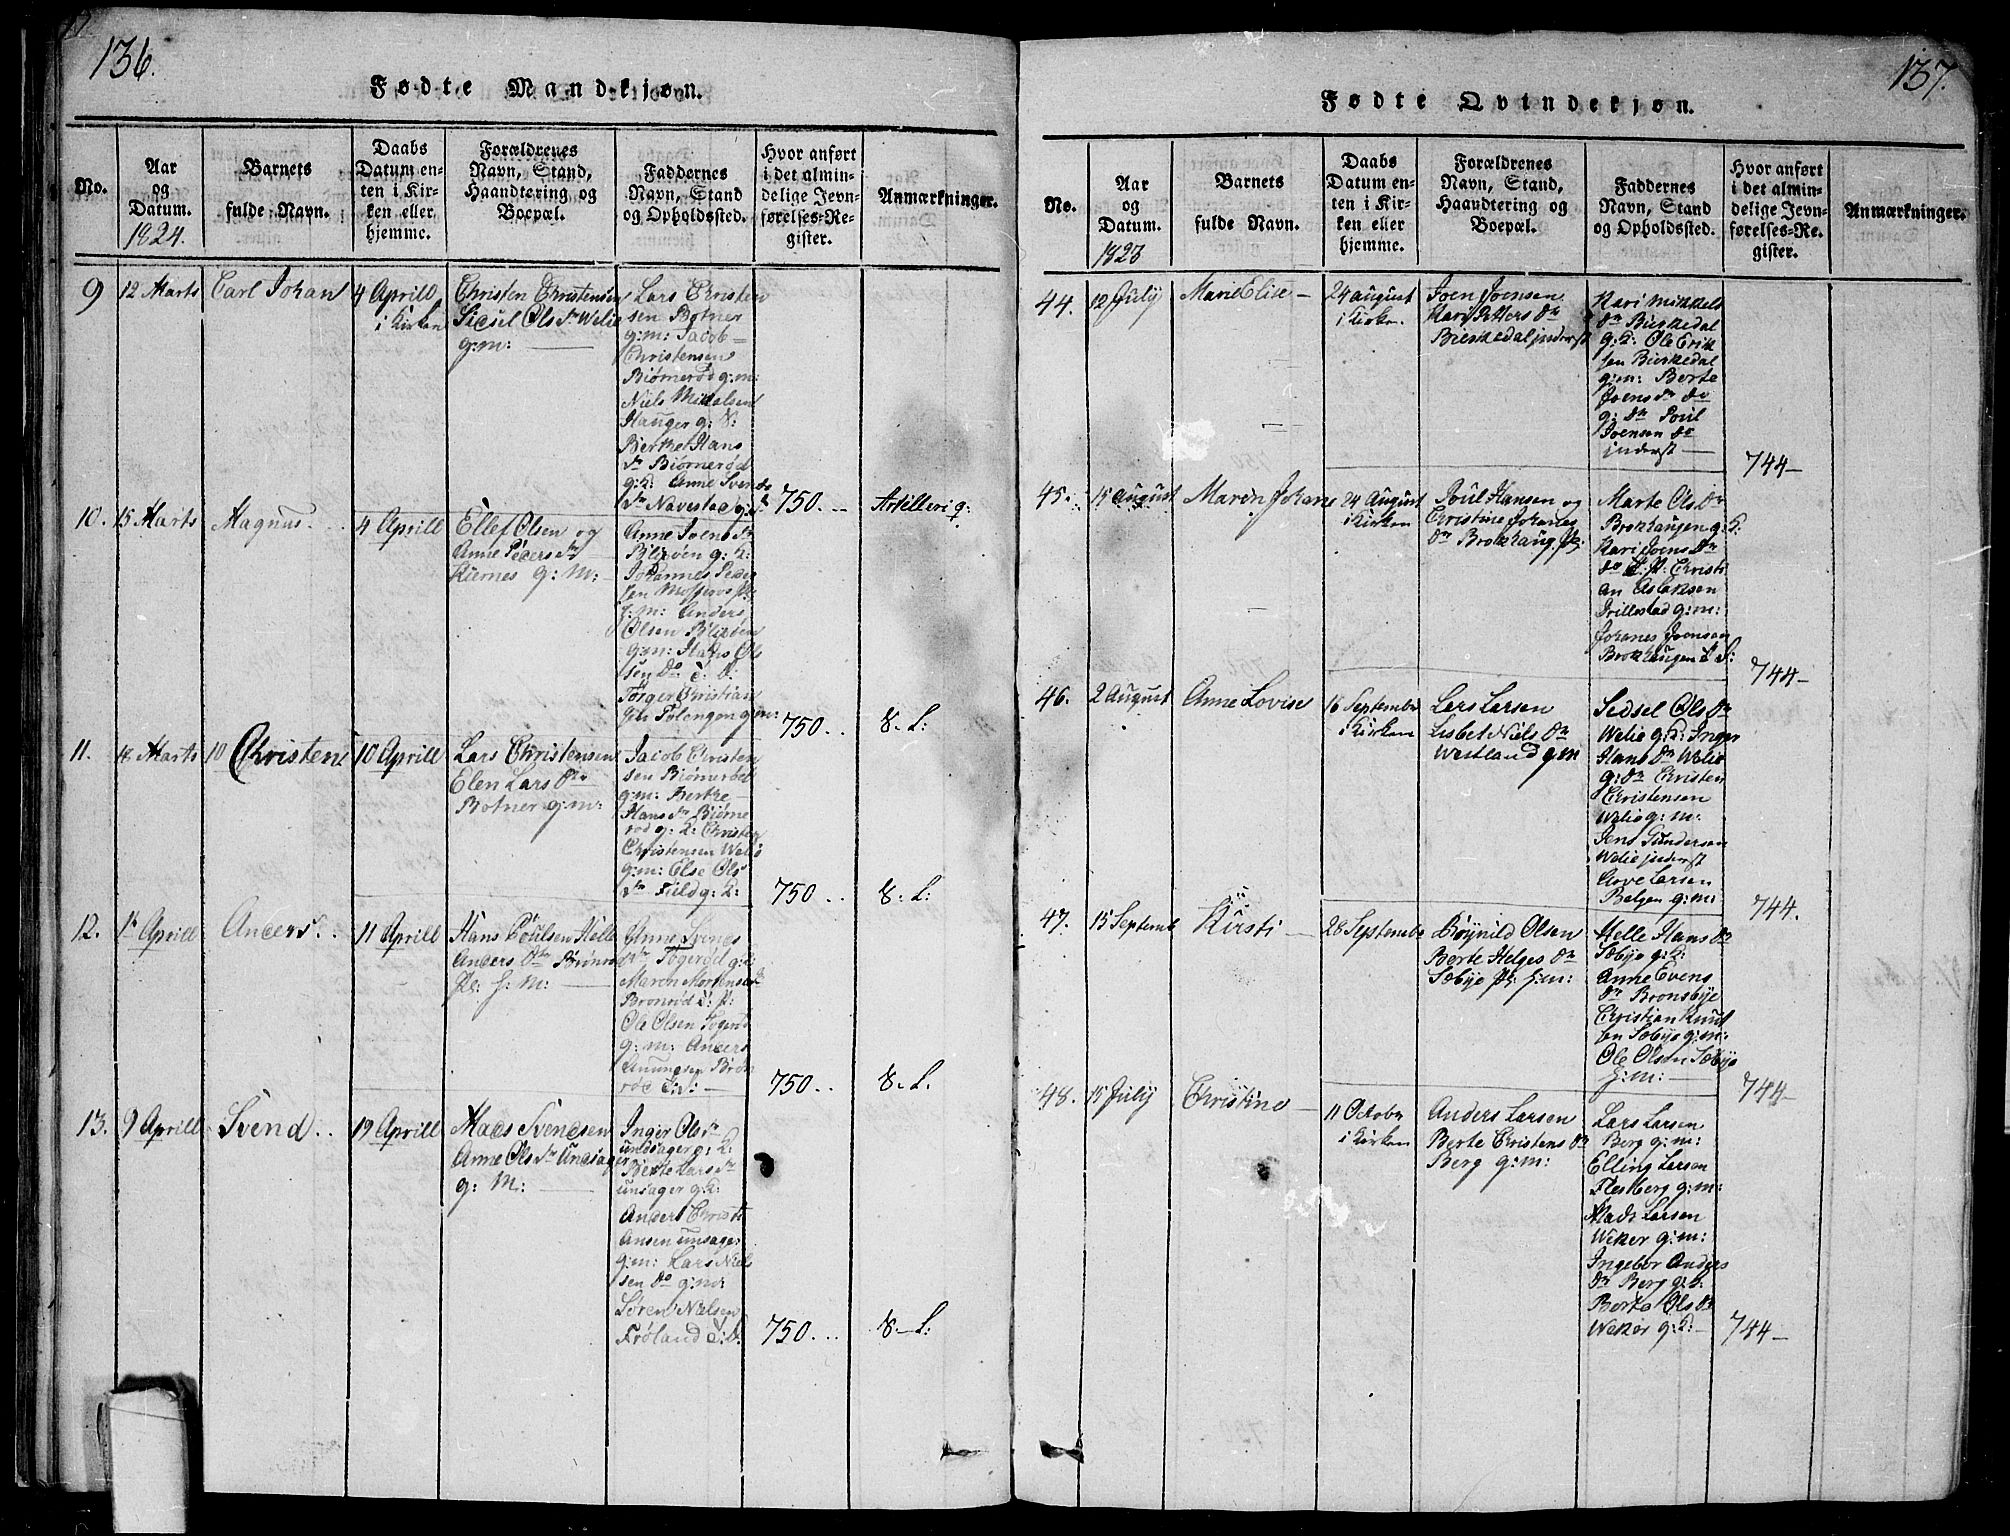 136.
Fødte Mandkjøn.
No.
Aar
og
Datum.
1824.
Barnets
fulde Navn.
Daabs
Datum en-
ten i Kir-
ken eller
hjemme.
Forældrenes
Navn, Stand,
Haandtering og
Boepæl.
Faddernes
Navn, Stand
og Opholdssted.
Hvor anført
i det almin-
delige Jevn-
førelses-Re-
gister.
Anmærkninger.
9
12 Marts
Carl Johan
4 Aprill
i Kirken
Christen Christensen
Sidsel Ols Dr Welie
g:m:
Lars Christen
sen Botner
g:m: Jacob
Christensen
Biørnerød g:m:
Niels Mikkelsen
Hauger g:
Berthe Hans
Dr Biørnerød
g:K: Anne Svends
Dr Navestad
750.
10.
15 Marts
Magnus.
4 Aprill
Ellef Olsen og
Anne Peders Dr
Kiernes g: M:
Anne Svends Dr
g: K:
Johannes Peder
sen
g:m: Anders
Olsen
g:m: Hans Ol
sen Do
Torger Christian
g:m:
750..
11.
Marts
Christen
10 Aprill
Lars Christensen
Elen Lars Dr
Botner g:m:
Jacob Christen
sen
g:m: Berthe
Hans Dr Biørne
rød g: K: Christen
Christensen Welie
g:m: Else Ols
Dr g: K:
750..
12.
Aprill
Anders..
11 Aprill
Hans Poulsen Helle
Anders Dr
M:
Anne Svends
Dr g:K:
Maren Mortens
Ole Olsen
g:m: Anders
750..
13.
9 Aprill
Svend..
19 Aprill
Mads Svendsen
Anne Ols Dr Undsager
g: M:
Inger Ols Dr
undsager g: K:
Berte Lars Dr
unsager g:K:
Anders Christi
ansen unsager
g:m: Lars Niel
sen Do g:m:
Søren Nielsen
Frøland
750...
137.
Fødte Qvindekjøn.
No.
Aar
og
Datum.
1823
Barnets
fulde Navn.
Daabs
Datum en-
ten i Kir-
ken eller
hjemme.
Forældrenes
Navn, Stand,
Haandtering og
Boepæl.
Faddernes
Navn, Stand
og Opholdssted.
Hvor anført
i det almin-
delige Jevn-
førelses-Re-
gister.
Anmærkninger.
44.
12 July
Marie Elise
24 august
i Kirken.
Joen Joensen
Kari Petters Dr
Bierkedal inderst
Kari Mikkels
Dr Bierkedal
g:K: Ole Erik
sen Bierkedal
g:m: Berte
Joens Dr do
g: Dr Poul
Joensen do
inderst
744
45.
15 August
Maren Johane
24 August
i Kirken
Poul Hansen og
Christine Johanes
Dr Brokhaug
Marte Ols Dr
Brokhaugen g:K:
Kari Joens Dr
do Christi
an Aslaksen
g:m:
Johanes Joensen
Brokhaugen
744
46.
2 August
Anne Lovise
16 Septembr
i Kirken
Lars Larsen
Lisbet Niels Dr
Westland g:m
Sidsel Ols Dr
Welie g:K: Inger
Hans Dr Welie
g: Dr Christen
Christensen
Welie g: m:
Jens Gundersen
Welie inderst
Larsen
g:m:
744.
47.
15 Septemb
Kirsti
28 Septembr
Brynild Olsen
Berte Helges Dr
Søbye m:
Helle Hans Dr
Søbye g:K:
Anne Evens
Dr Brønsbye
Christian Knut
sen Søbye g:m:
Ole Olsen Søbye
m:
744
48.
15 July
Christine
11 Octobr
i Kirken
Anders Larsen
Berte Christens Dr
Berg g:m:
Lars Larsen
Berg g:m:
Elling Larsen
Flesberg g:m:
Mads Larsen
Weker g:m:
Ingebor Anders
Dr Berg g:K:
Berte Ols Dr
Weker g:K:
744